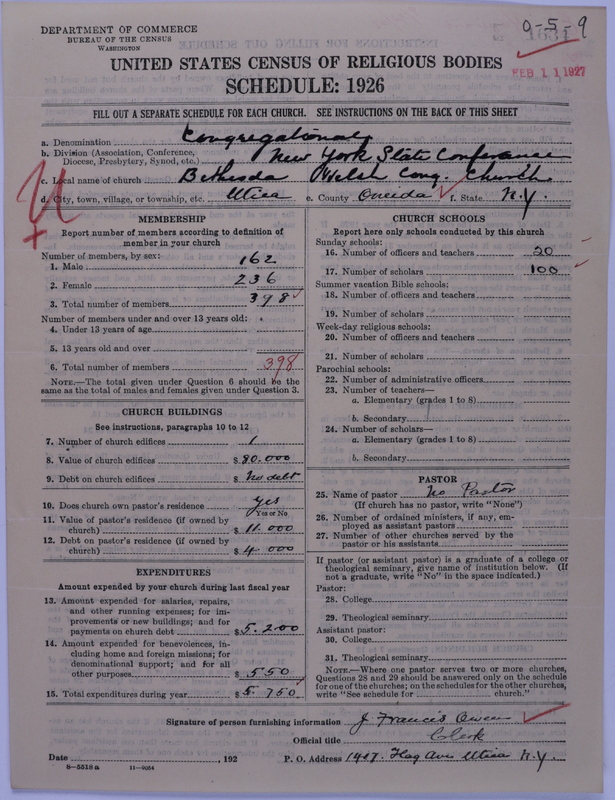 DEPARTMENT OF COMMERCE
BUREAU OF THE CENSUS
WASHINGTON
0-5-9
FEB 11 1927
UNITED STATES CENSUS OF RELIGIOUS BODIES
SCHEDULE: 1926
FILL OUT A SEPARATE SCHEDULE FOR EACH CHURCH. SEE INSTRUCTIONS ON THE BACK OF THIS SHEET
a. Denomination Congregational
b. Division (Association, Conference, Diocese, Presbytery, Synod, etc.) New York State Conference
c. Local name of church Bethesda Welsh Cong. Church
d. City, town, village, or township, etc. Utica e. County Oneida f. State N.Y.
MEMBERSHIP
Report number of members according to definition of
member in your church
Number of members, by sex:
1. Male 162
2. Female 236
3. Total number of members 398
Number of members under and over 13 years old:
4. Under 13 years of age
5. 13 years old and over
6. Total number of members 398
NOTE.—The total given under Question 6 should be the
same as the total of males and females given under Question 3.
CHURCH BUILDINGS
See instructions, paragraphs 10 to 12
7. Number of church edifices 1
8. Value of church edifices $ 80.000
9. Debt on church edifices $ No debt
10. Does church own pastor's residence Yes
Yes or No
11. Value of pastor's residence (if owned by
church) $ 11.000
12. Debt on pastor's residence (if owned by
church) $ 4.000
EXPENDITURES
Amount expended by your church during last fiscal year
13. Amount expended for salaries, repairs,
and other running expenses; for im-
provements or new buildings; and for
payments on church debt $ 5.200
14. Amount expended for benevolences, in-
cluding home and foreign missions; for
denominational support; and for all
other purposes $ 550
15. Total expenditures during year $ 5 750
CHURCH SCHOOLS
Report here only schools conducted by this church
Sunday schools:
16. Number of officers and teachers 20
17. Number of scholars 100
Summer vacation Bible schools:
18. Number of officers and teachers
19. Number of scholars
Week-day religious schools:
20. Number of officers and teachers
21. Number of scholars
Parochial schools:
22. Number of administrative officers
23. Number of teachers—
a. Elementary (grades 1 to 8)
b. Secondary
24. Number of scholars—
a. Elementary (grades 1 to 8)
b. Secondary
PASTOR
25. Name of pastor No Pastor
(If church has no pastor, write "None")
26. Number of ordained ministers, if any, em-
ployed as assistant pastors
27. Number of other churches served by the
pastor or his assistants
If pastor (or assistant pastor) is a graduate of a college or
theological seminary, give name of institution below. (If
not a graduate, write "No" in the space indicated.)
Pastor:
28. College
29. Theological seminary
Assistant pastor:
30. College
31. Theological seminary
NOTE.—Where one pastor serves two or more churches,
Questions 28 and 29 should be answered only on the schedule
for one of the churches; on the schedules for the other churches,
write "See schedule for church."
Signature of person furnishing information J Francis Owen
Official title Clerk
Date , 192 P. O. Address Ave Utica N.Y.
8-5318 a 11-9034